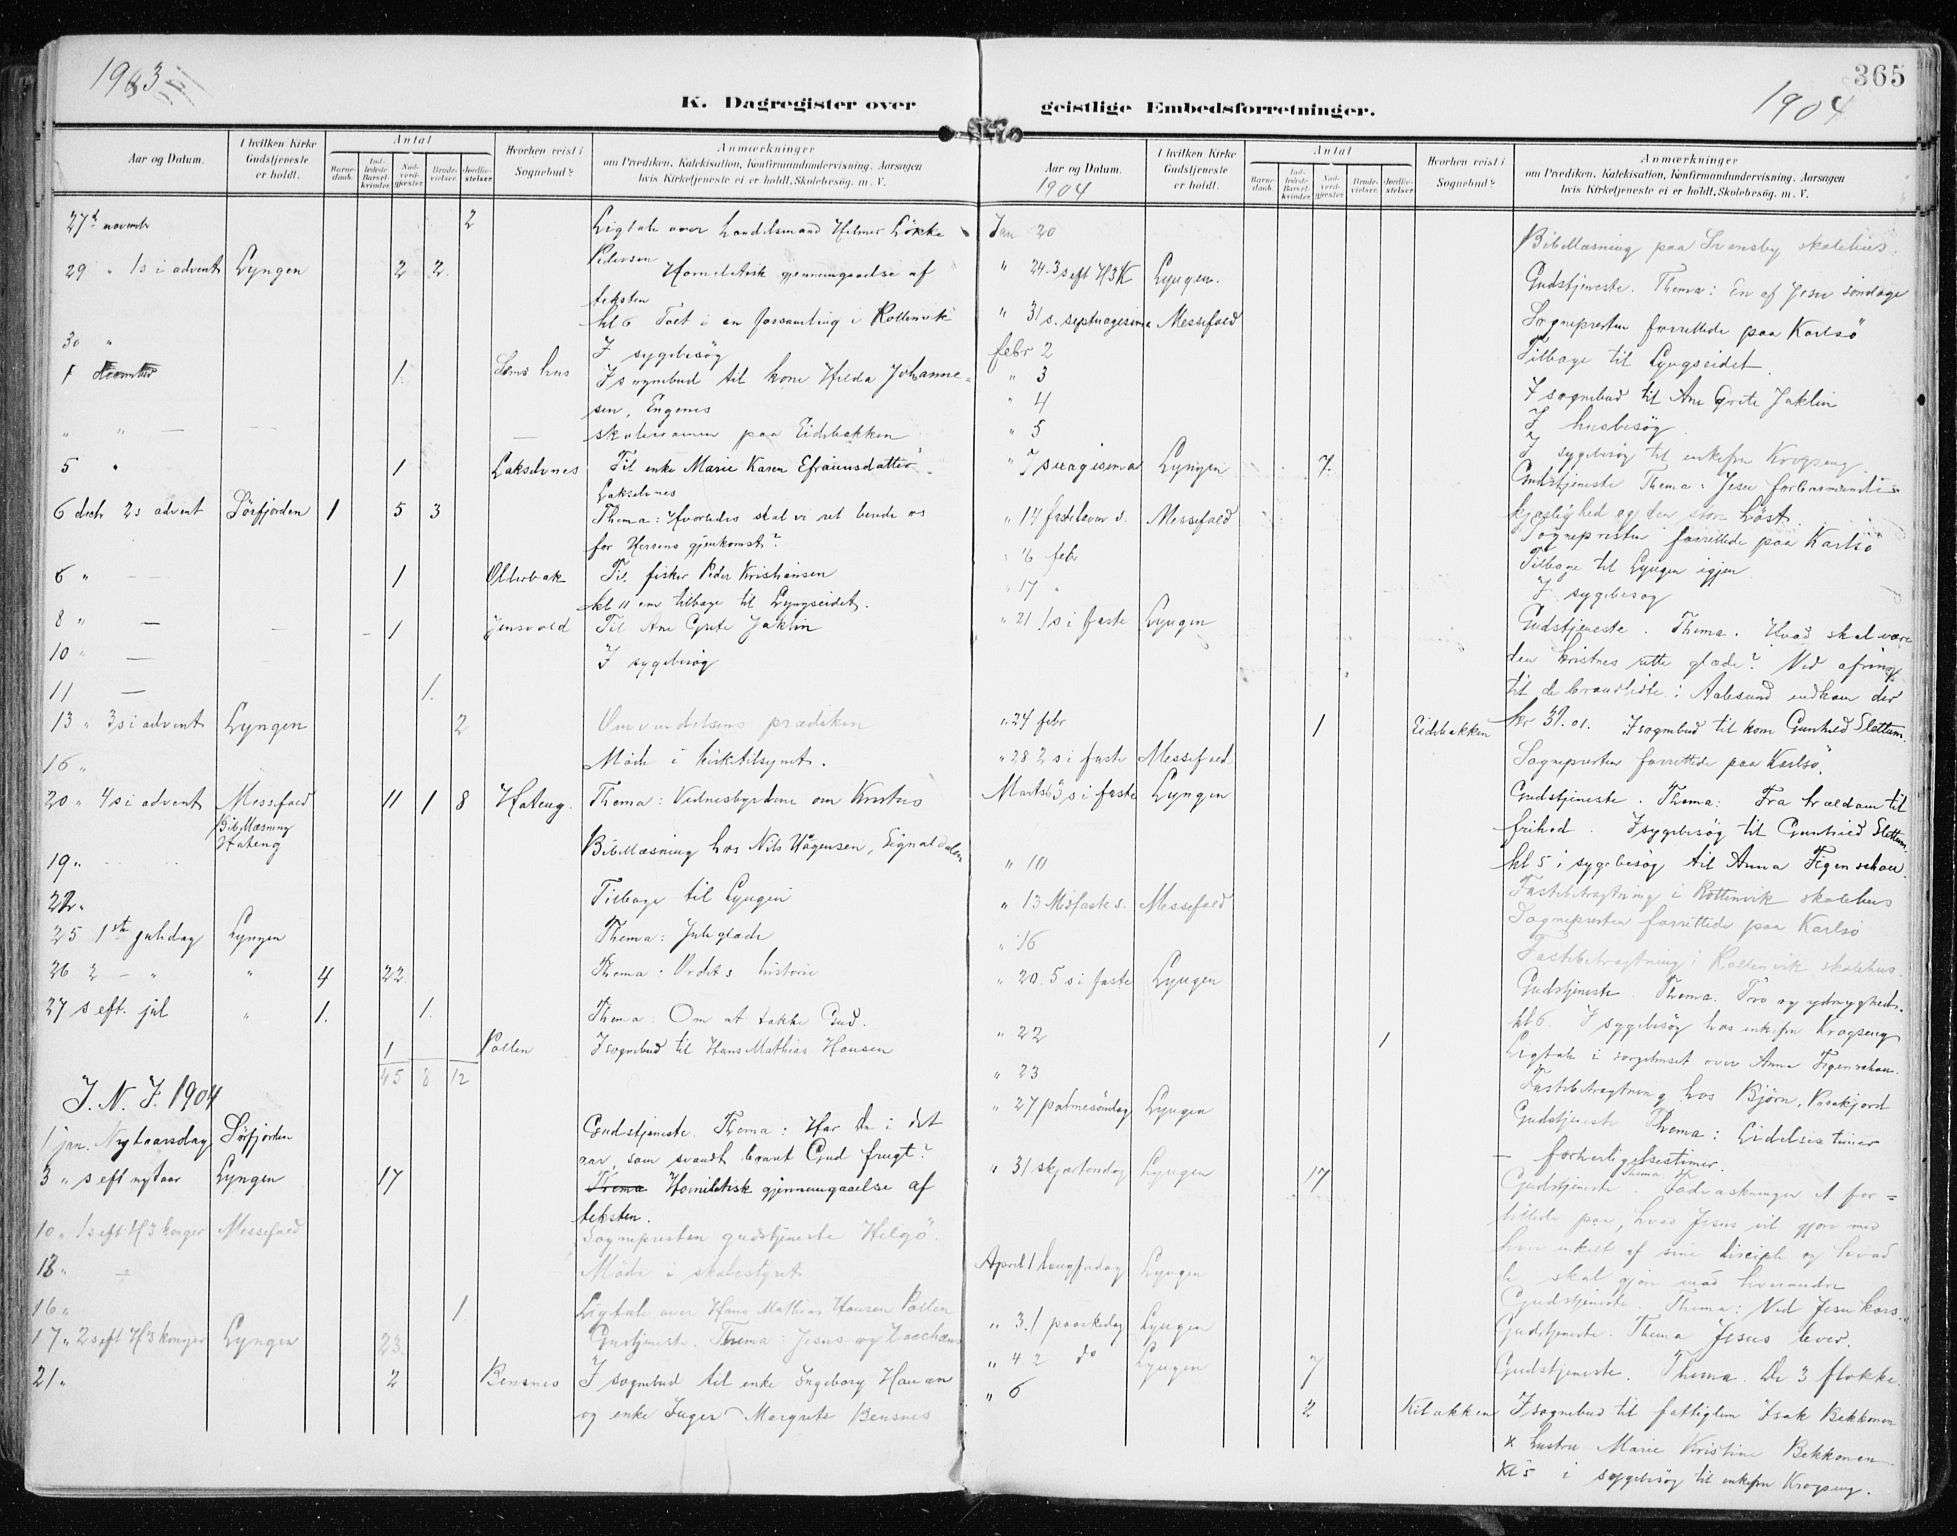 1903
365
1904
K. Dagregister over geistlige Embedsforretninger.
Aar og Datum.
I hvilken Kirke Gudstjeneste er holdt.
Antal
Barnedaab.
Indledede Barselkvinder.
Nadverdgjester.
Brudevielser.
Jordfæstelser.
Hvorhen reist i Sognebud?
Anmærkninger
om Prædiken, Katekisation, Konfirmandundervisning, Aarsagen
hvis Kirketjeneste ei er holdt, Skolebesøg. m. V.
27d novembr 2 Ligtale over Handelsmand Hilmer Løkke
Pedersen
29 " 1 s i advent Lyngen 2 2 Homiletisk gjennemgaaelse af
teksten
kl 6 Talt i en forsamling i Rottenvik
30 " I sygebesøg
1 december 1. hus I sognebud til kone Hilda Johanne=
sen, Engenes
" " — skoleexamen paa Eidebakken
5 " 1 Lakselvnes Til enke Marie Karen Efraimsdatter
Lakselvnes
6 decb 2 s advent Sörfjorden 1 5 3 Thema: Hvorledes skal vi ret berede os
for Herrens gjenkomst?
6 " — 1 Olderbak Til fisker Peder Kristiansen
kl 11 em tilbage til Lyngseidet.
8 " — 1 Jensvold Til Ane Grete Jaklin
10 " — I sygebesøg
11 — 1.
13 " 3 s i advent Lyngen 2 Omvendelsens prædiken
16 " Møde i kirketilsynet.
20 " 4 s i advent Messefold 11 1 8 Hateng. Thema: Vidnesbyrdene om Kristus
Bibellæsning
Hateng
19 " Bibellæsning hos Nils Hågensen, Signaldalen
22 " Tilbage til Lyngen
25 1ste juledag Lyngen Thema: Juleglæde
26 2 — " " 4 22. Thema: Ordets historie
27 s eft. jul " 1. 1. Thema: Om at takke Gud.
1 Pollen I sognebud til Hans Mathias Hansen
45 8 12
I. N. J. 1904
1 jan. Nytaarsdag Sörfjorden Gudstjeneste. Thema: Har Du i det
aar, som svandt baaret Gud frugt?
3 " s eft nytaar Lyngen 17 Thema Homiletisk gjennemgaaelse af
teksten.
10 " 1 s eft H 3 konger Messefold Sognepresten gudstjeneste Helgö.
13 " — Møde i skolestyret
16 " 1 Ligtale over Hans Mathias Hansen Pollen
17 " 2 s eft H 3 konger Lyngen 23. Gustjeneste. Thema: Jesus og
21 " 2 Bensnes I sognebud til enke Ingeborg Hansen
og enke Inger Margrete Bensnes
Aar og Datum.
1904
I hvilken Kirke Gudstjeneste er holdt.
Antal
Barnedaab.
Indledede Barselkvinder.
Nadverdgjester.
Brudevielser.
Jordfæstelser.
Hvorhen reist i Sognebud?
Anmærkninger
om Prædiken, Katekisation, Konfirmandundervisning, Aarsagen
hvis Kirketjeneste ei er holdt, Skolebesøg. m. V.
Jan 20 Bibellæsning paa Svensby skolehus.
" 24. 3 s eft H3K Lyngen. Gudstjeneste. Thema: En af Jesu söndage
" 31 s. septuagesima Messefold Sognepresten forrettede paa Karlsö
febr 2 Tilbage til Lyngseidet.
" 3 I sognebud til Ane Grete Jaklin
" 4 I husbesøg
" 5 I sygebesøg til enkefru Krogseng
" 7 sexagesima Lyngen 7. Gudstjeneste Thema: Jesu forbarmende
kjærlighed og den store høst.
" 14 fastelavn s. Messefold Sognepresten forrettede paa Karlsö
" 16 febr Tilbage til Lyngen igjen
" 17 " I sygebesøg
" 21 1 s i faste Lyngen Gudstjeneste. Thema. Hvad skal være
den kristnes rette glæde? Ved ofring
til de brandlidte i Aalesund indkom der
kr 31.01.
" 24 febr 1 Eidebakken I sognebud til kone Gunhild Slettum.
" 28 2 s i faste Messefold Sognepresten forrettede paa Karlsö.
Marts 6 3 s i faste Lyngen Gudstjeneste. Thema: Fra trældom til
frihed. I sygebesøg til Gunhild Slettum.
kl 5 i sygebesøg til Anna Figenschau
" 10 Fastebetragtning i Rottenvik skolehus
" 13 Midfaste s. Messefold Sognepresten forrettede paa Karlsö
" 16 Fastebetragtning i Rottenvik skolehus.
" 20. 5 s i faste Lyngen Gudstjeneste. Thema. Tro og ydmyghed.
kl 6. I sygebesøg hos enkefru Krogseng
" 22 1 Ligtale i sørgehuset over Anna Figenschau.
" 23 Fastebetragtning hos Björn,
" 27 palmesöndag Lyngen Gudstjeneste Thema: Lidelsestimer
— forherligelsestimer.
" 31 skjærtorsdag Lyngen 17 Gudstjeneste. Thema: Fodvaskningen et for=
billede paa, hvad Jesus vil gjøre med
hver enkelt af sine disciple og hvad
de skal gjøre mod hverandre
April 1 langfredag Lyngen Gudstjeneste. Thema: Ved Jesu kors.
" 3. 1 paaskedag Lyngen Gudstjeneste. Thema Jesus lever.
" 4 2 do Lyngen 7 Gudstjeneste. Thema. De 3 flokke.
" 6 2 Kilbakken I sognebud til fattiglem Isak Bekkonen
x hustru Marie Kristine Bekkonen
Kl 5 i sygebesøg til enkefru Krogseng.